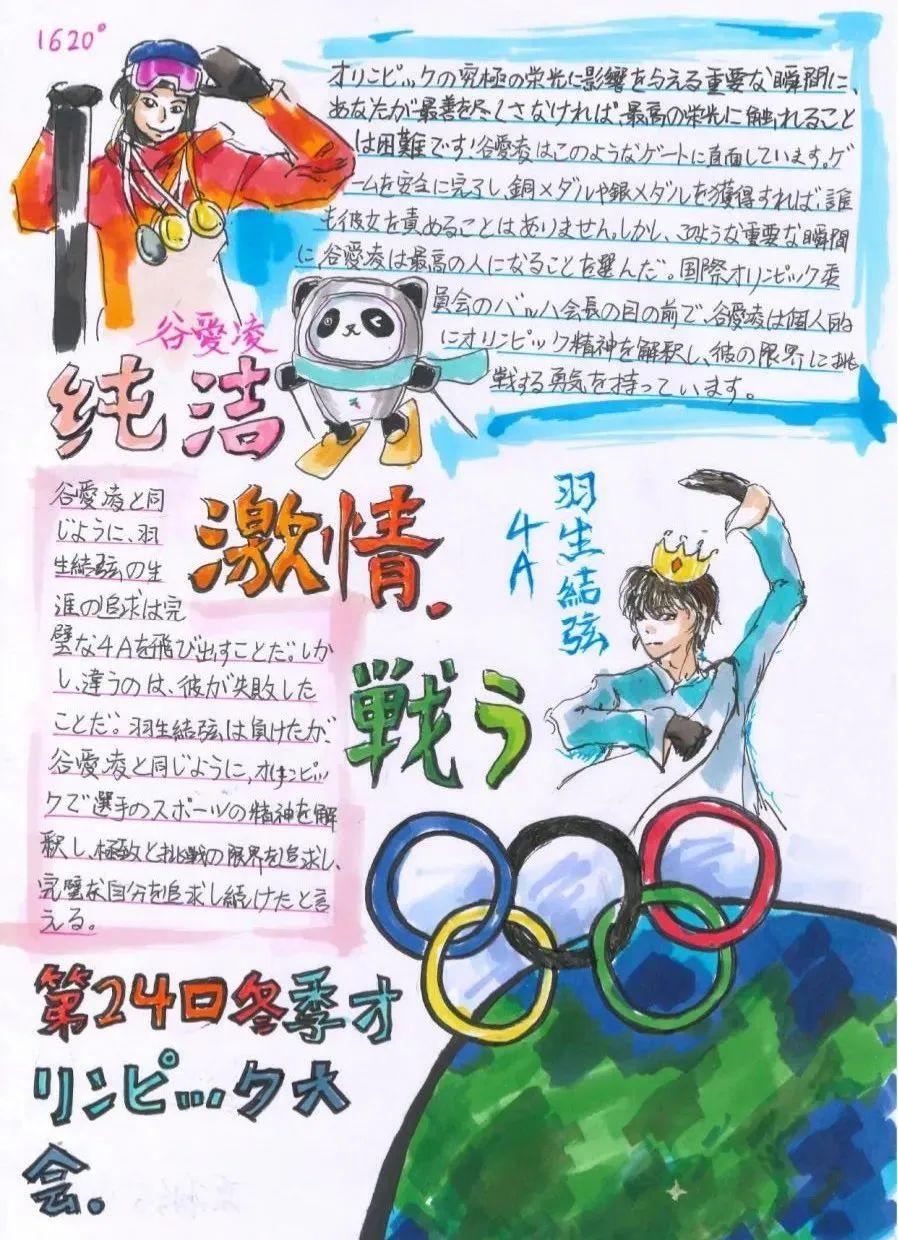 1620°
オリンピックの究極の栄光に影響を与える重要な瞬間に、
あなたが最善を尽くさなければ、最高の栄光に触れること
は困難です!谷愛凌はこのようなゲートに直面しています。ゲ
ームを安全に完了し、銅メダルや銀メダルを獲得すれば、誰
も彼女を責めることはありません。しかし、このような重要な瞬間
に、谷愛凌は最高の人になることを選んだ。国際オリンピック委
員会のバッハ会長の目の前で、谷愛凌は個人的
にオリンピック精神を解釈し、彼の限界に挑
戦する勇気を持っています。
谷愛凌
纯洁
激情.
戦う
谷愛凌と同
じように、羽
生結弦の生
涯の追求は完
璧な4Aを飛び出すことだ。しか
し、違うのは、彼が失敗した
ことだ。羽生結弦は負けたが、
谷愛凌と同じように,オリンピッ
クで選手のスポーツの精神を解
釈し、極致と挑戦の限界を追求し、
完璧な自分を追求し続けたと言
える。
羽生結弦
4A
第24回冬季オ
リンピック大
会.